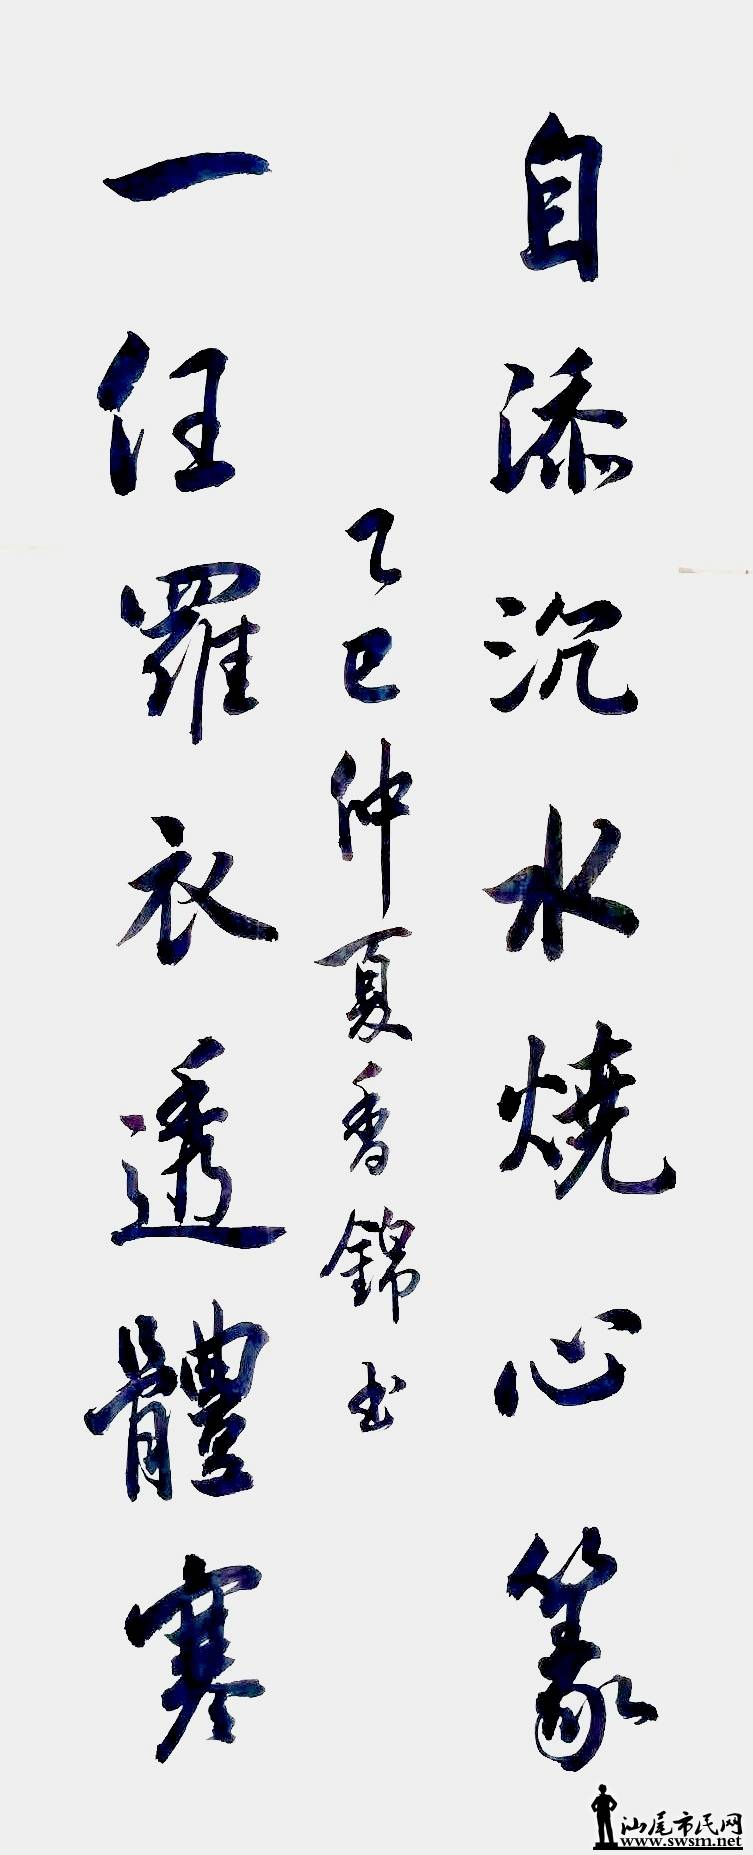 自添沉水燒心篆
一任羅衣透體寒
乙巳仲夏香錦书
汕尾市民网
www.swsm.net